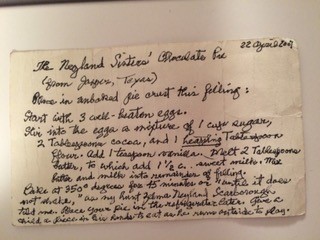 22 April 2009
The Neyland Sisters' Chocolate Pie
(from Jasper, Texas)
Place in unbaked pie crust this filling:
Start with 3 well-beaten eggs.
Stir into the eggs a mixture of 1 cup sugar,
2 Tablespoons cocoa, and 1 heaping Tablespoon
flour. Add 1 teaspoon vanilla. Melt 2 Tablespoons
butter, to which add 1½ c. sweet milk. Mix
butter and milk into remainder of filling.
Bake at 350 degrees for 45 minutes or "until it does
not shake," as my aunt Zelma Neyland Scarborough
told me. Place your pie in the refrigerator later. Give a
child a piece in his hands to eat as he runs outside to play.